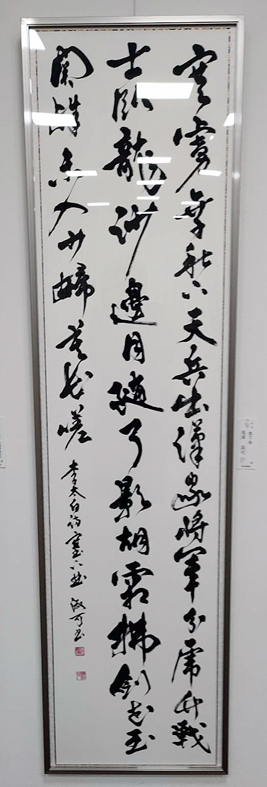 塞虜乘秋下天兵出漢家將軍分虎竹戰
士臥龍沙邊月隨弓影胡霜拂劍花玉
關殊未入少婦莫長嗟
李太白詩塞下曲 淑可書